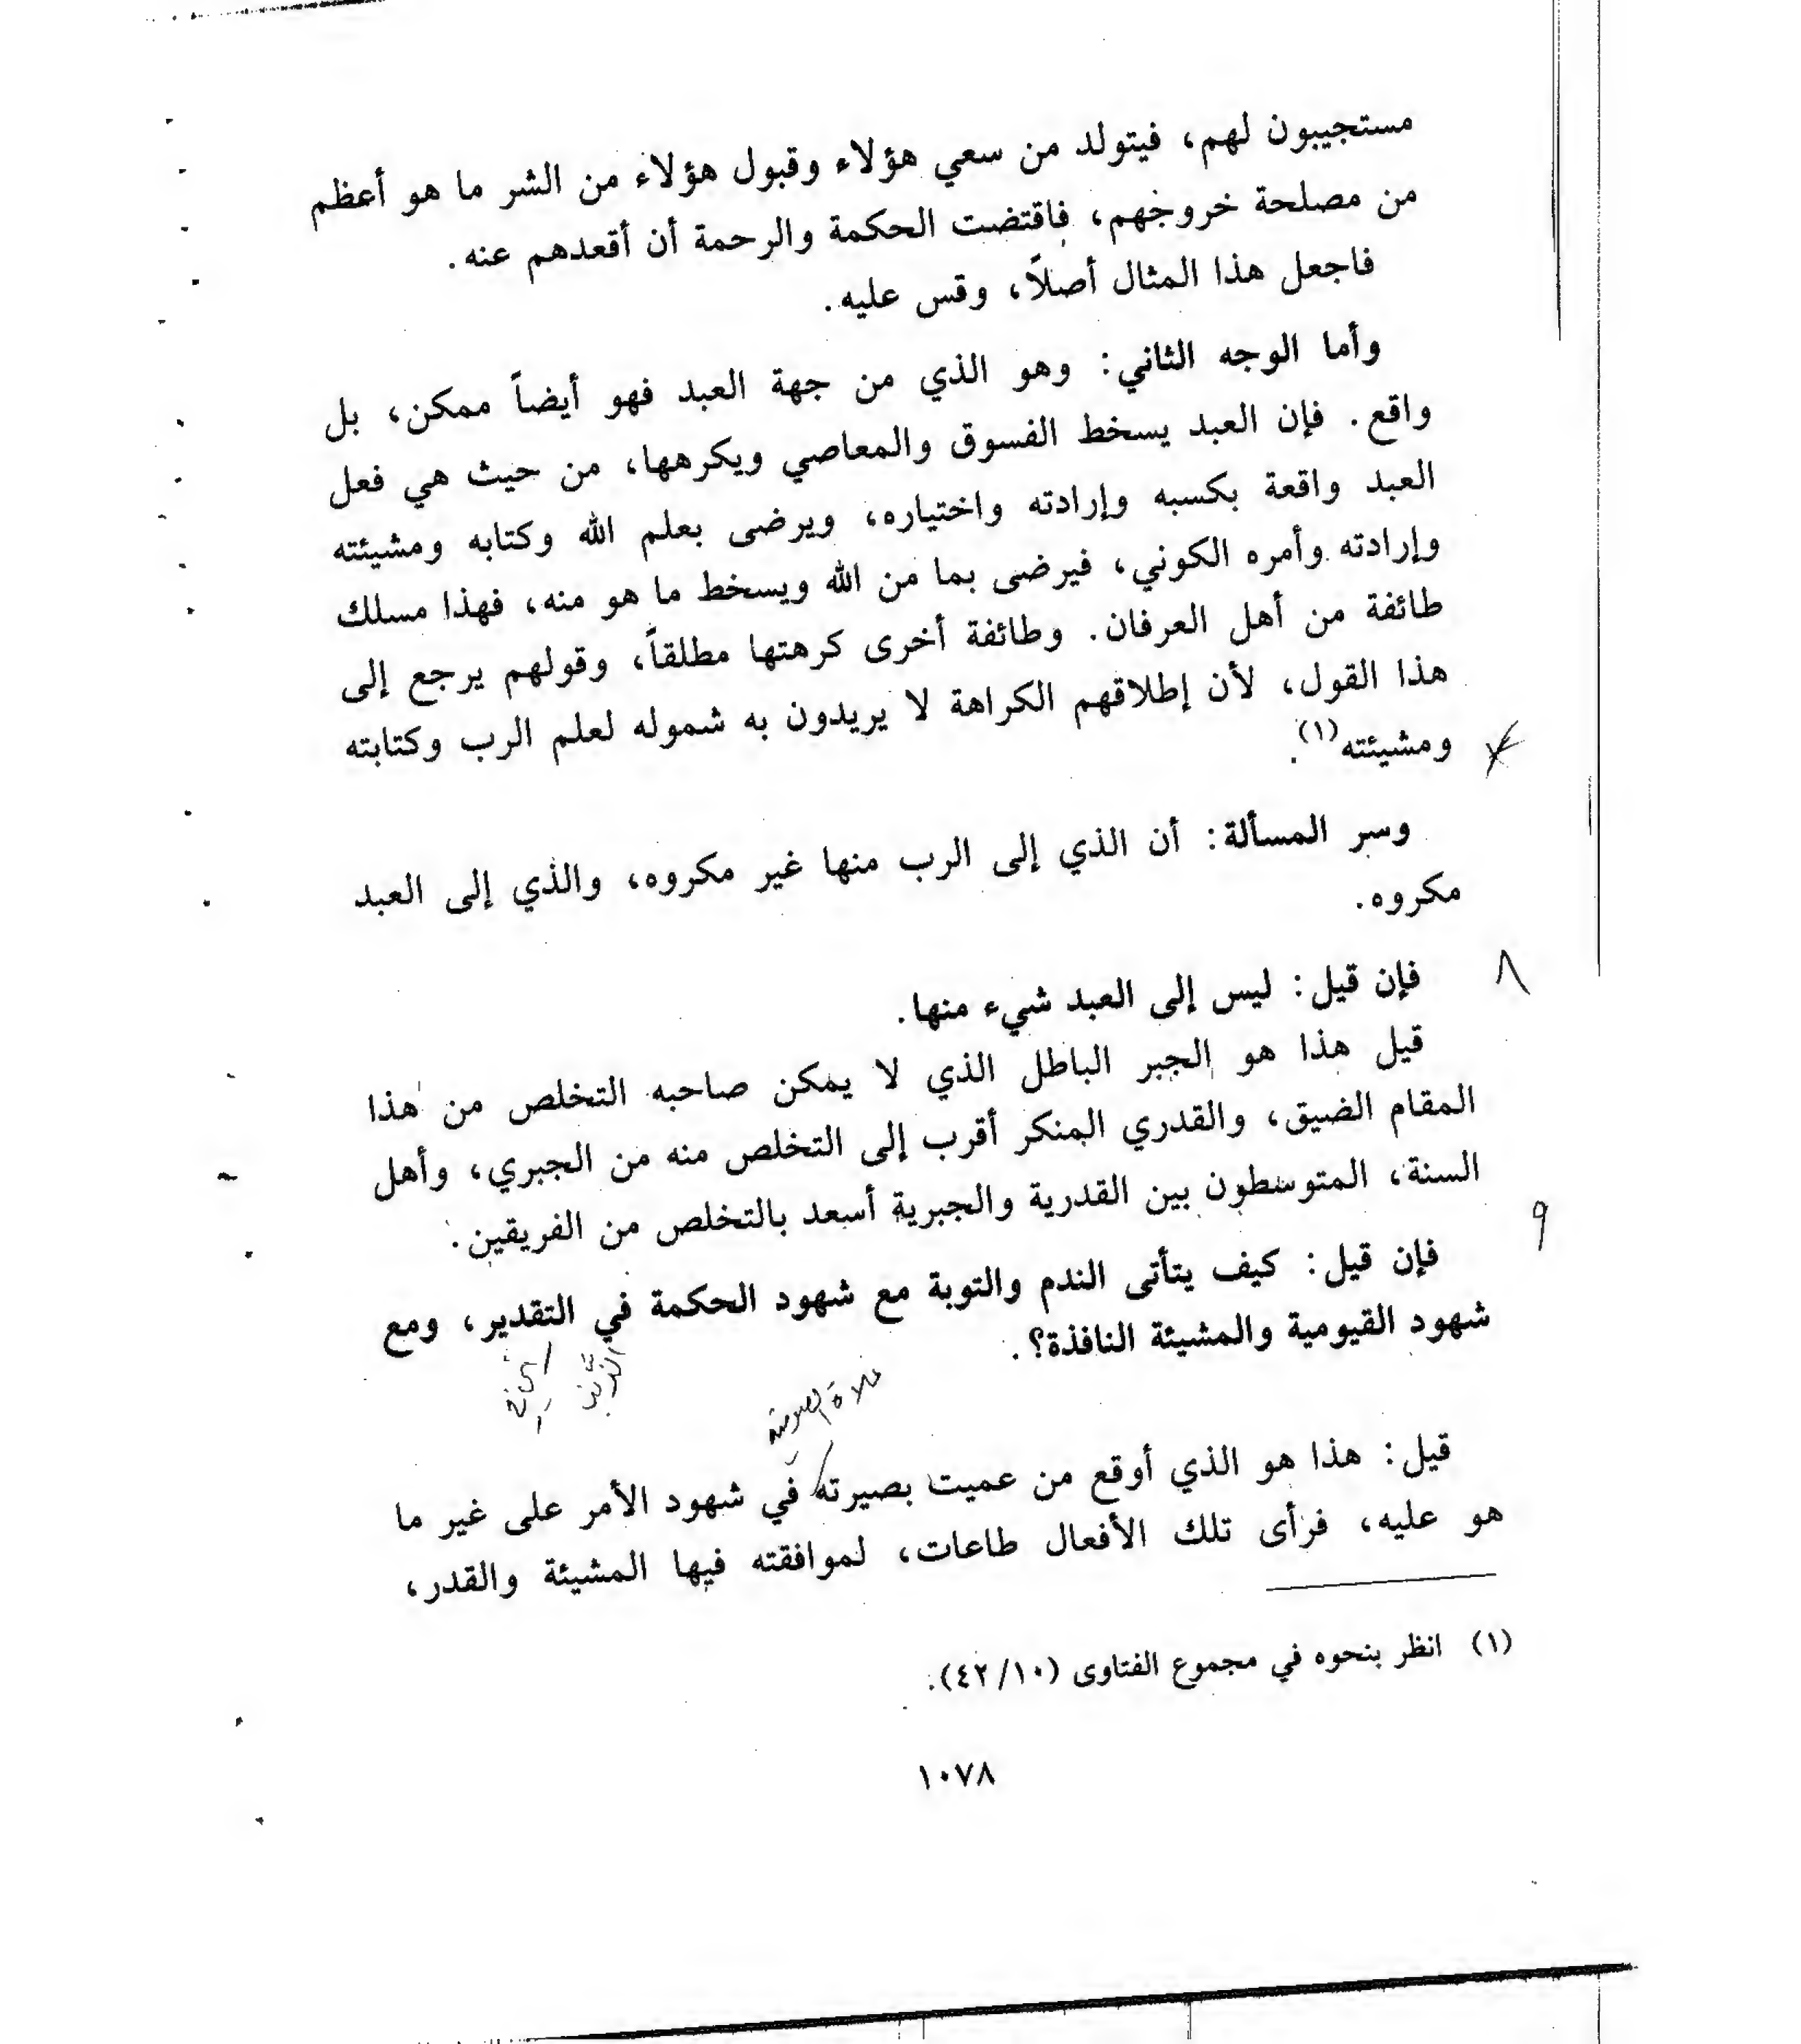 مستجيبون لهم، فيتولد من سعي هؤلاء وقبول هؤلاء من الشر ما هو أعظم
من مصلحة خروجهم، فاقتضت الحكمة والرحمة أن أقعدهم عنه.
فاجعل هذا المثال أصلاً، وقس عليه.
وأما الوجه الثاني: وهو الذي من جهة العبد فهو أيضاً ممكن، بل
واقع. فإن العبد يسخط الفسوق والمعاصي ويكرهها، من حيث هي فعل
العبد واقعة بكسبه وإرادته واختياره، ويرضى بعلم الله وكتابه ومشيئته
وإرادته وأمره الكوني، فيرضى بما من الله ويسخط ما هو منه، فهذا مسلك
طائفة من أهل العرفان. وطائفة أخرى كرهتها مطلقاً، وقولهم يرجع إلى
هذا القول، لأن إطلاقهم الكراهة لا يريدون به شموله لعلم الرب وكتابته
ومشيئته(١).
وسر المسألة: أن الذي إلى الرب منها غير مكروه، والذي إلى العبد
مكروه.
٨ فإن قيل: ليس إلى العبد شيء منها.
قيل هذا هو الجبر الباطل الذي لا يمكن صاحبه التخلص من هذا
المقام الضيق، والقدري المنكر أقرب إلى التخلص منه من الجبري، وأهل
السنة، المتوسطون بين القدرية والجبرية أسعد بالتخلص من الفريقين.
٩ فإن قيل: كيف يتأتى الندم والتوبة مع شهود الحكمة في التقدير، ومع
شهود القيومية والمشيئة النافذة؟.
قيل: هذا هو الذي أوقع من عميت بصيرته في شهود الأمر على غير ما
هو عليه، فرأى تلك الأفعال طاعات، لموافقته فيها المشيئة والقدر،
(١) انظر بنحوه في مجموع الفتاوى (٤٢/١٠).
١٠٧٨